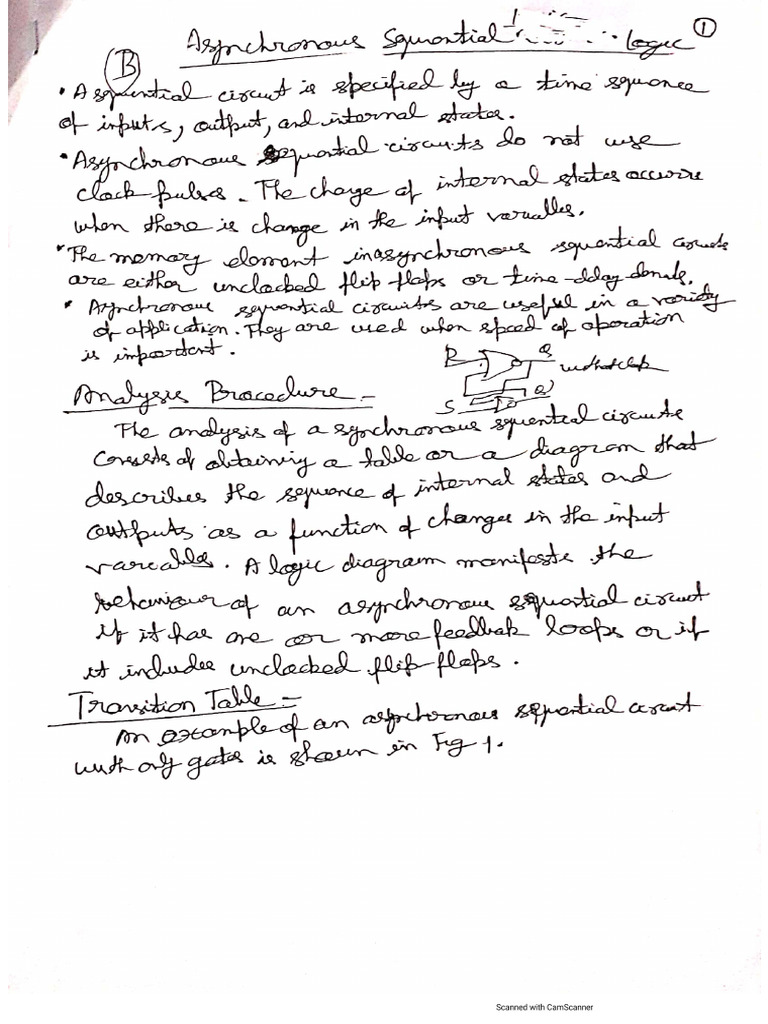 Asynchronous Sequential Logic ①
Ⓑ
• A sequential circuit is specified by a time squence
of inputs, output, and internal states.
• Asynchronous sequential circuits do not use
clock pulses. The change of internal states occure
when there is change in the input variables.
• The memory element in asynchronous squential circuits
are either unclocked flip flops or time-delay
• Asynchronous sequential circuits are useful in a variety
of application. They are used when speed of operation
is important.
R Q
S Q'
Analysis Procedure :-
The analysis of asynchronous squential circuits
Consists of obtaining a table or a diagram that
describes the squence of internal states and
outputs as a function of changes in the input
variables. A logic diagram manifests the
behaviour of an asynchronous squential circuit
if it has one or more feedback loops or if
it includes unclocked flip-flops.
Transition Table :-
An example of an asynchronous squential circuit
with only gates is shown in Fig 1.
Scanned with CamScanner